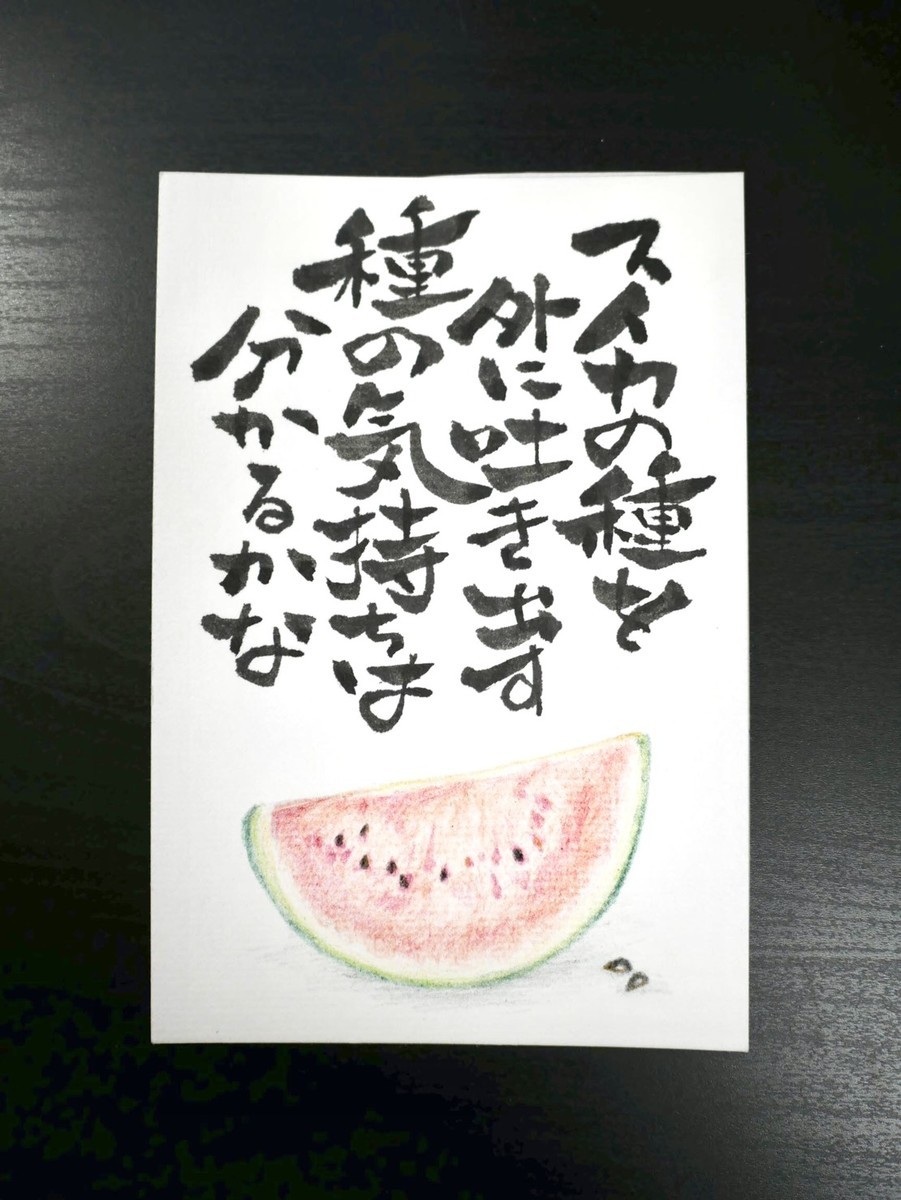 スイカの種を
外に吐き出す
種の気持ちは
分かるかな